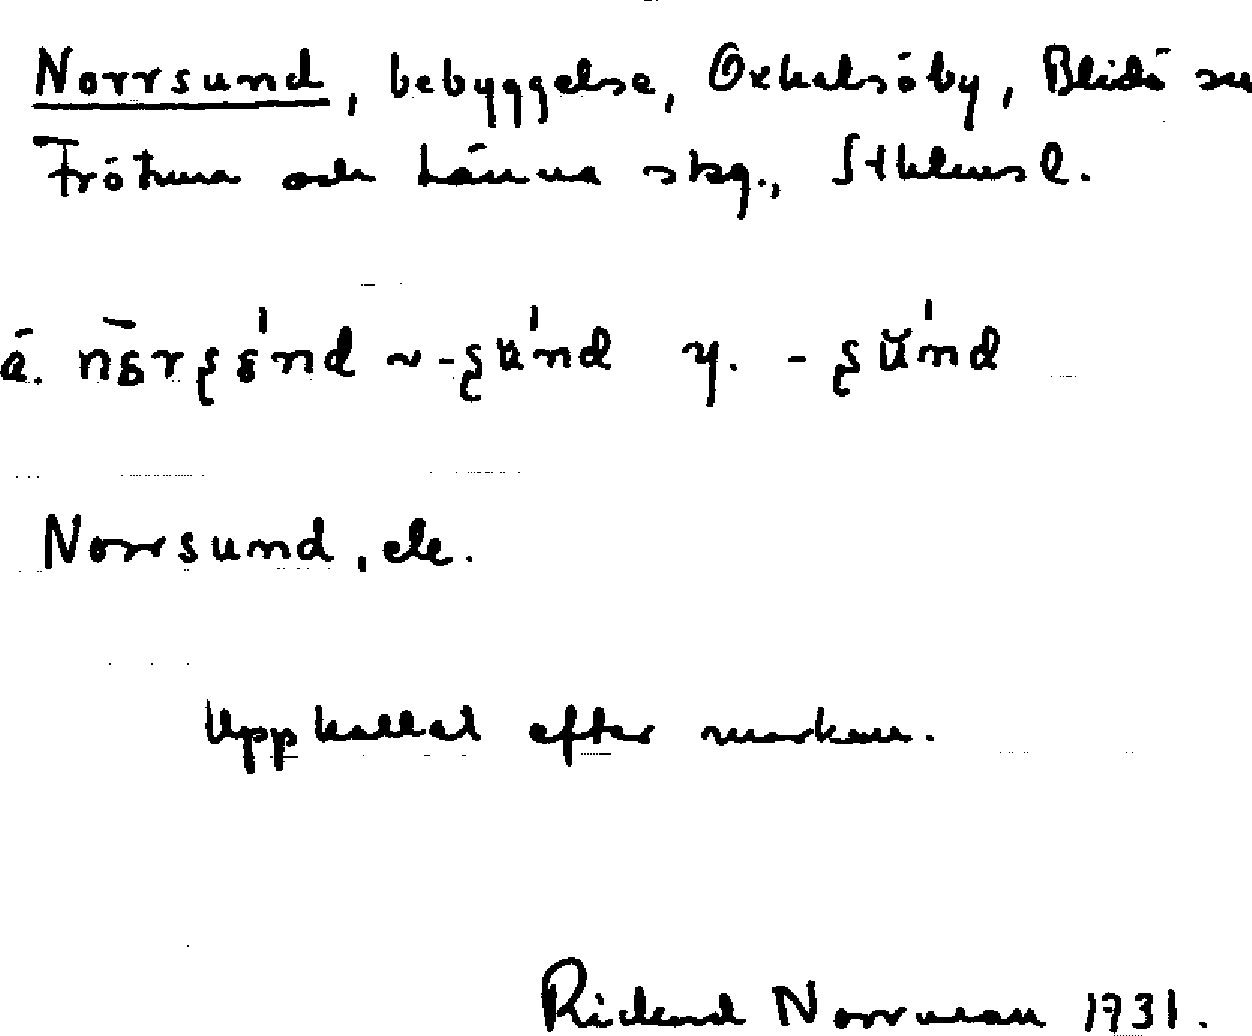 Norrsund, bebyggelse, Oxhalsöby, Blidö sn
Frötuna och Länna skg., Sthlms l.
ä. y.
Norrsund, ek.
Uppkallat efter marken.
Rickard Norrman 1931.